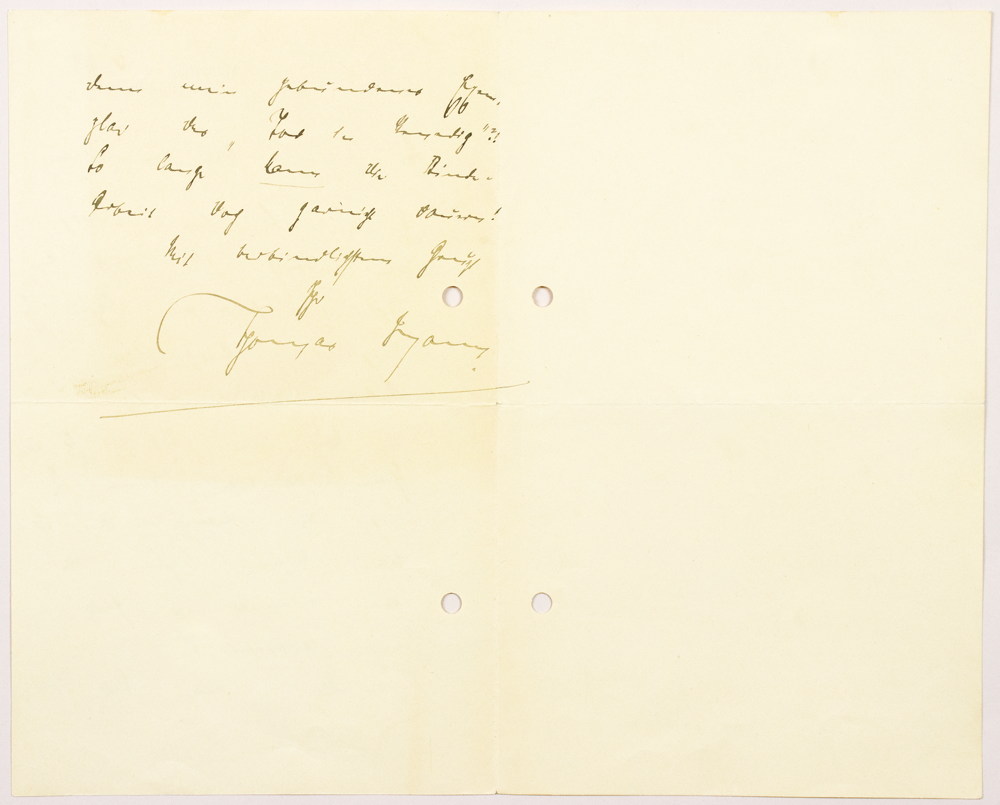 denn mein gebundenes Exem-
plar des „Tod in Venedig"?!
So lange kann die Binde-
Arbeit doch garnicht dauern!
Mit verbindlichstem Gruß
Ihr
Thomas Mann.